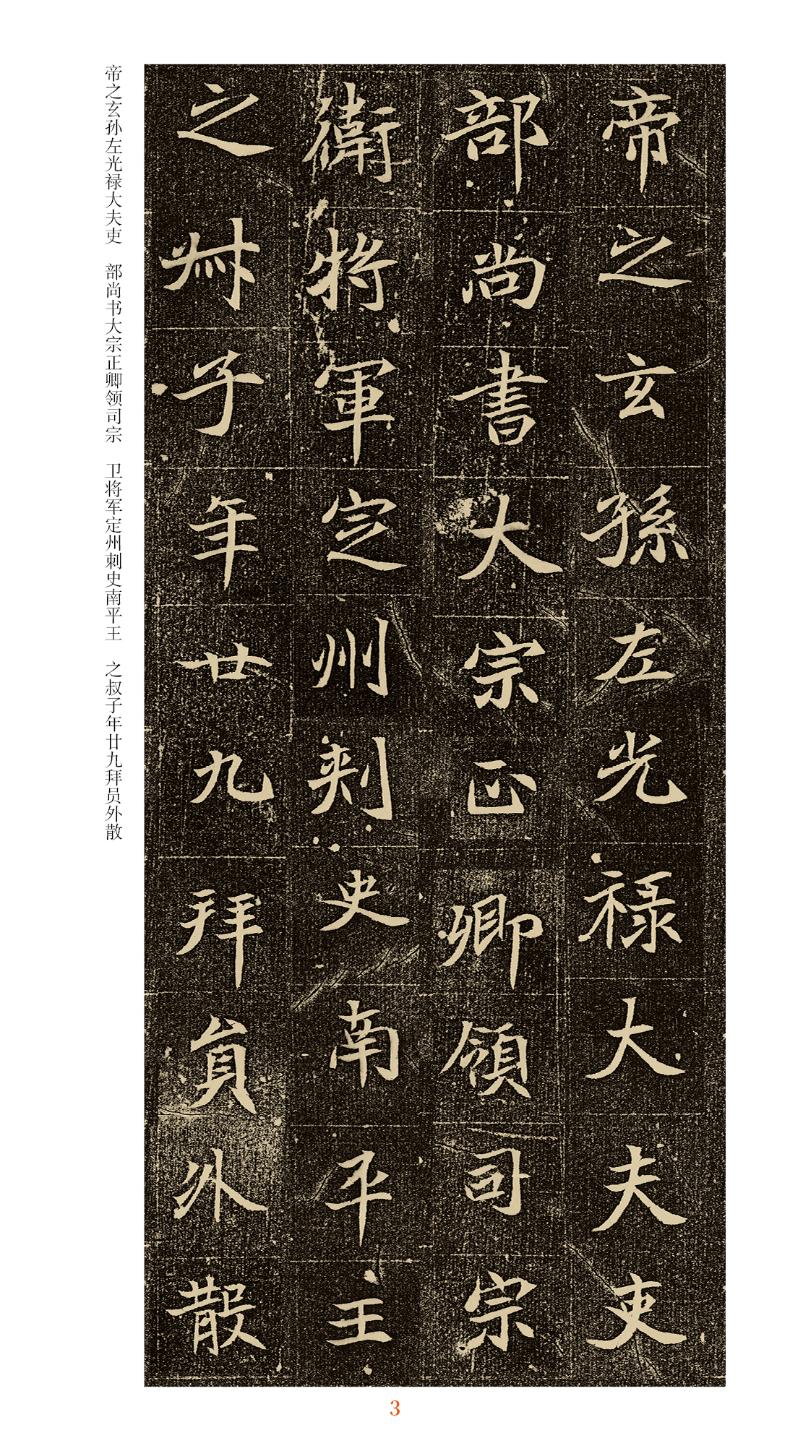 帝之玄孫左光禄大夫吏
部尚書大宗正卿領司宗
衛將軍定州刾史南平王
之𠦑子年廿九拜員外散
帝之玄孙左光禄大夫吏 部尚书大宗正卿领司宗 卫将军定州刺史南平王 之叔子年廿九拜员外散
3